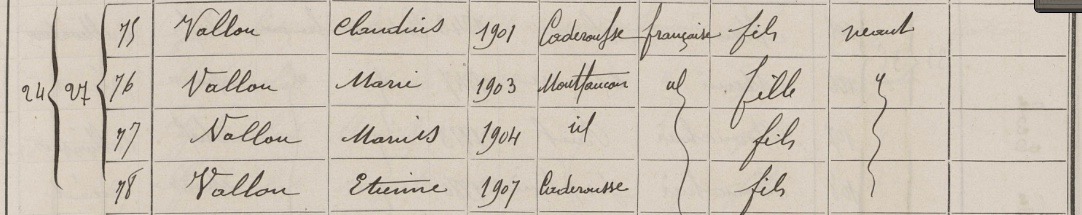 24 27 75 Vallon Claudius 1901 Caderousse française fils néant
76 Vallon Marie 1903 Montfaucon id fille
77 Vallon Marius 1904 id fils
78 Vallon Etienne 1907 Caderousse fils